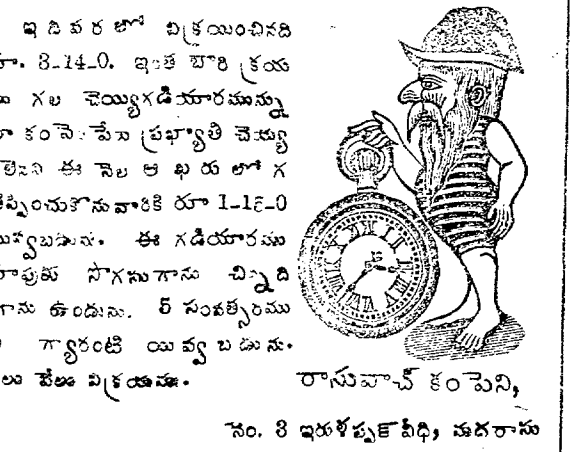 ఇ ది వ ర లో విక్రయించినది
రూ. 3-14-0. ఇంత బారి క్రయ
ము గల చెయ్యిగడియారమున్ను
మా కంపెనీ పేరు ప్రఖ్యాతి చెయ్యు
ఈ నెల ఆ ఖ రు లో గ
తెప్పించుకొనువారికి రూ 1-15-0
యివ్వబడును. ఈ గడియారము
సొగసుగాను చిన్నది
గాను ఉండును. 5 సంవత్సరము
గ్యారంటి యివ్వ బ డును.
లు వేలు విక్రయము.
రాసువాచ్ కంపెని,
నెం. 3 ఇరుళప్పక్ వీధి, మదరాసు